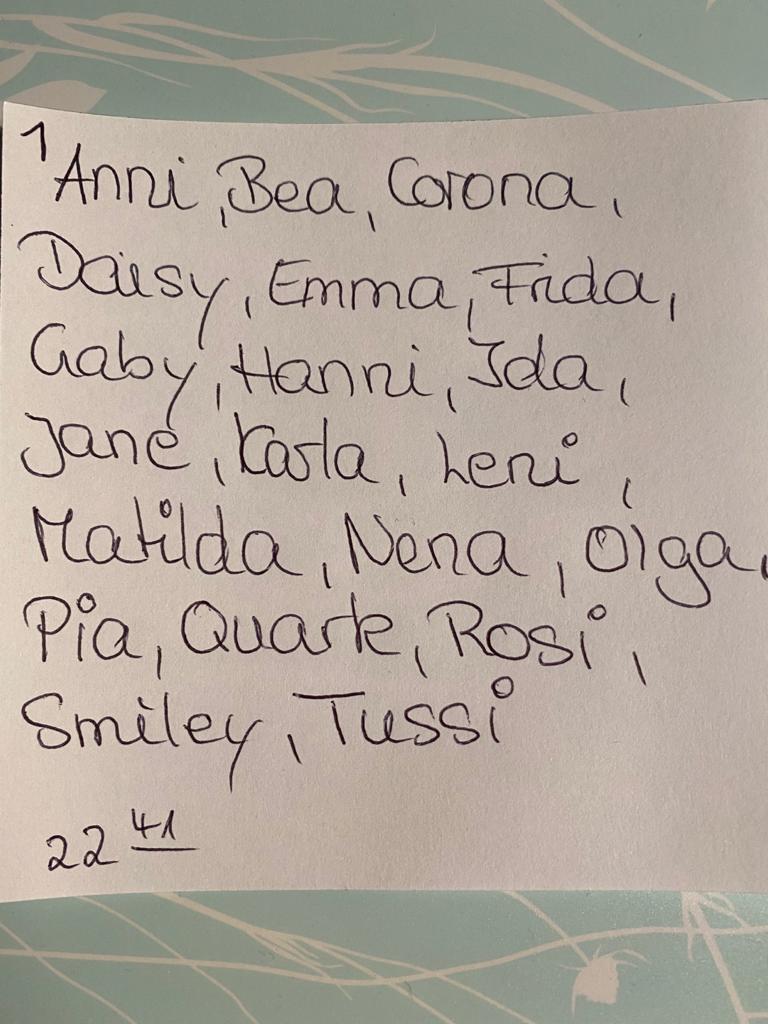 1
Anni, Bea, Corona,
Daisy, Emma, Frida,
Gaby, Hanni, Ida,
Jane, Karla, Leni,
Matilda, Nena, Olga,
Pia, Quark, Rosi,
Smiley, Tussi
22 41